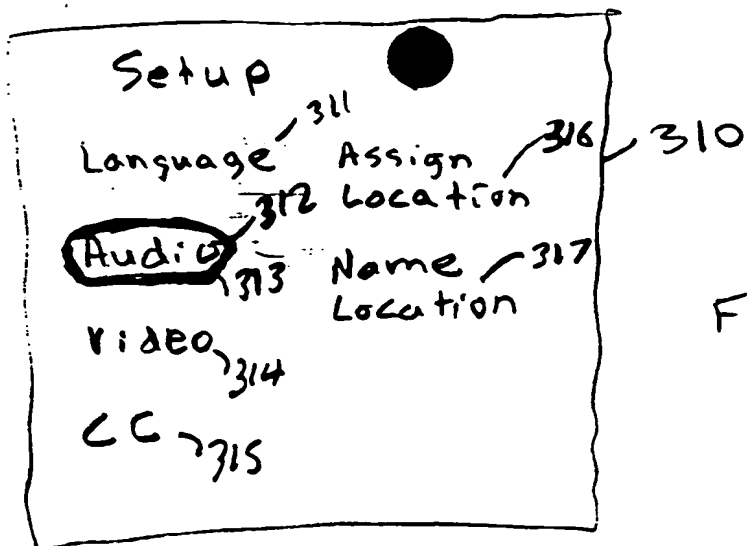 Setup
Language 311
Audio 312
313
Video 314
CC 315
Assign
Location 316
Name
Location 317
310
F